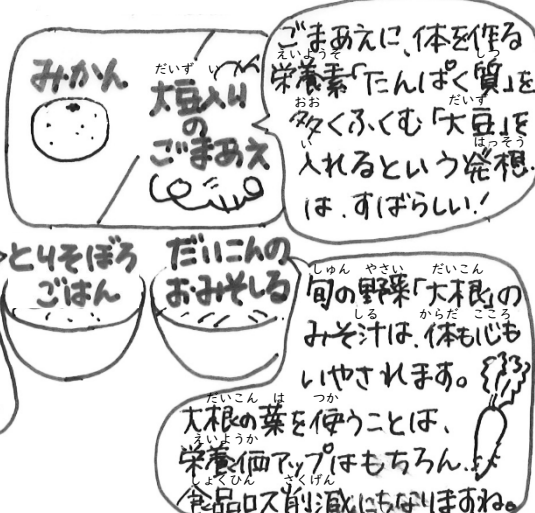 みかん
大豆入り
の
ごまあえ
ごまあえに、体を作る
栄養素「たんぱく質」を
多くふくむ「大豆」を
入れるという発想
は、すばらしい!
とりそぼろ
ごはん
だいこんの
おみそしる
旬の野菜「大根」の
みそ汁は、体も心も
いやされます。
大根の葉を使うことは、
栄養価アップはもちろん、
食品ロス削減にもなりますね。